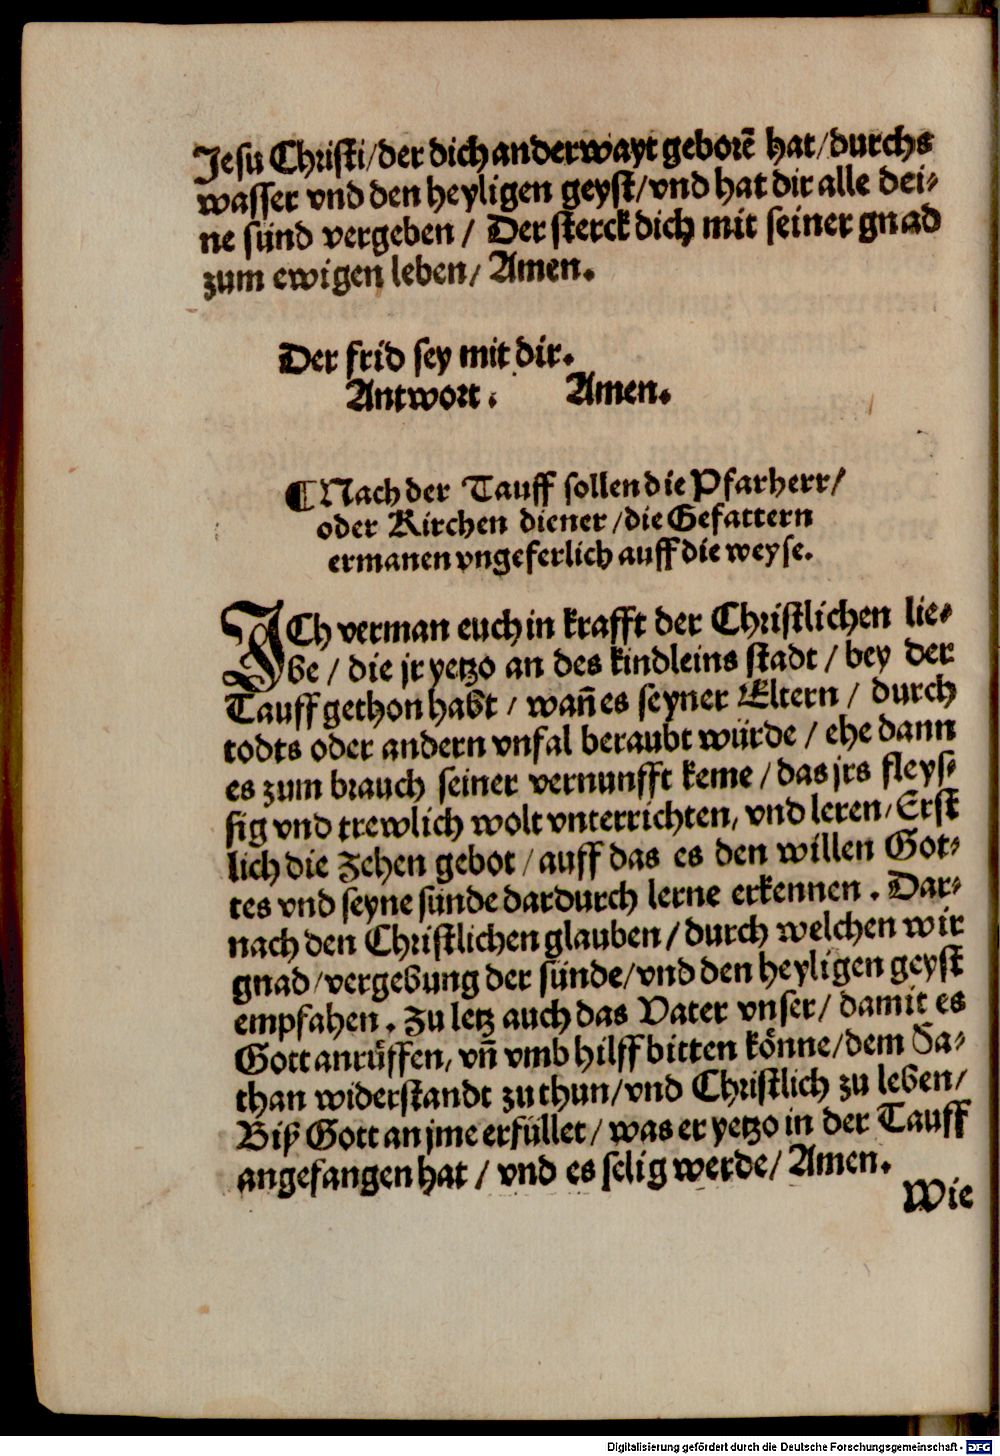 Jesu Christi/der dich anderwayt geborē hat/durchs
wasser vnd den heyligen geyst/vnd hat dir alle dei-
ne sünd vergeben / Der sterck dich mit seiner gnad
zum ewigen leben/ Amen.
Der frid sey mit dir.
Antwort. Amen.
¶Nach der Tauff sollen die Pfarherr/
oder Kirchen diener/die Gefattern
ermanen vngeferlich auff die weyse.
ICh verman euch in krafft der Christlichen lie-
be / die jr yetzo an des kindleins stadt / bey der
Tauff gethon habt / wañ es seyner Eltern / durch
todts oder andern vnfal beraubt würde / ehe dann
es zum brauch seiner vernunfft keme / das jrs fleys-
sig vnd trewlich wolt vnterrichten, vnd leren/ Erst
lich die Zehen gebot / auff das es den willen Got-
tes vnd seyne sünde dardurch lerne erkennen . Dar-
nach den Christlichen glauben / durch welchen wir
gnad/vergebung der sünde/vnd den heyligen geyst
empfahen. Zu letz auch das Vater vnser/ damit es
Gott anrüffen, vñ vmb hilff bitten könne/dem Sa-
than widerstandt zu thun/vnd Christlich zu leben/
Biß Gott an jme erfüllet/ was er yetzo in der Tauff
angefangen hat / vnd es selig werde/ Amen.
Wie
Digitalisierung gefördert durch die Deutsche Forschungsgemeinschaft - DFG